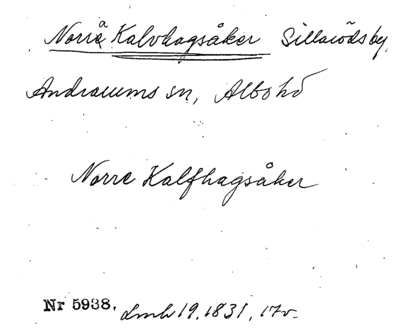 Norrå Kalvhagsåker Sillarödsby,
Andrarums sn, Albo hd
Norre Kalfhagsåker
Nr 5938. Lmh 19. 1831, 17v.